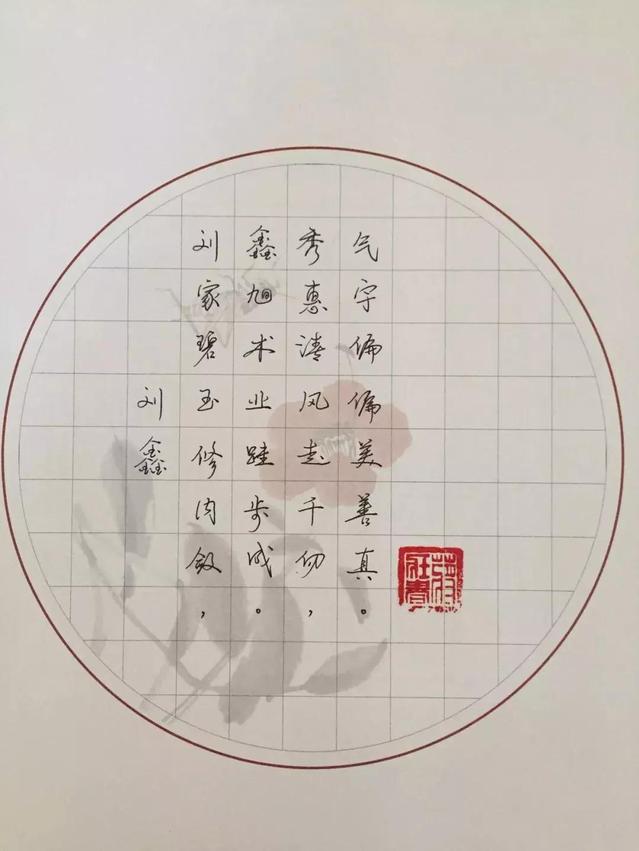 刘鑫
刘家碧玉修内敛，
鑫旭术业跬步成。
秀惠清风起千仞，
气宇偏偏美善真。